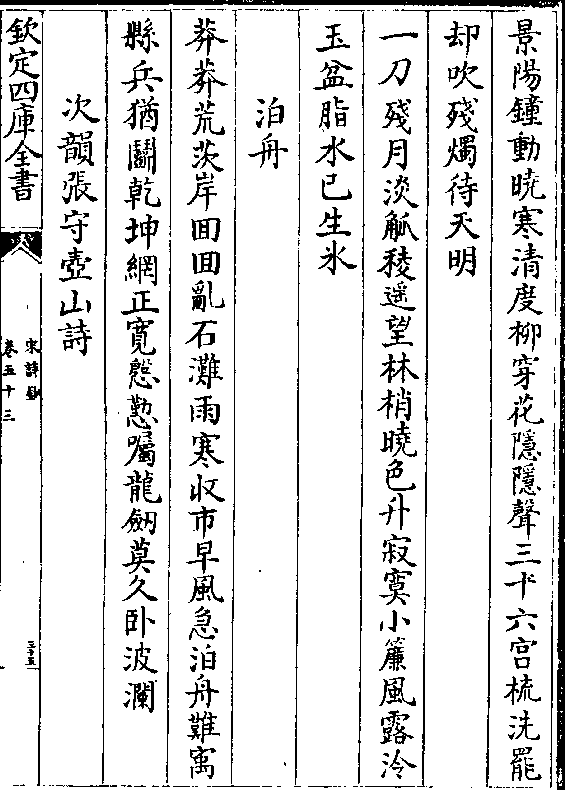 景陽鐘動曉寒清度柳穿花隱隱聲三十六宫梳洗罷
却吹殘燭待天明
一刀殘月淡觚稜遥望林梢曉色升寂寞小簾風露泠
玉盆脂水已生氷
泊舟
莽莽荒茨岸囬囬亂石灘雨寒收市早風急泊舟難寓
縣兵猶鬭乾坤網正寛慇懃囑龍劒莫久卧波瀾
次韻張守壺山詩
欽定四庫全書
宋詩鈔
卷五十三